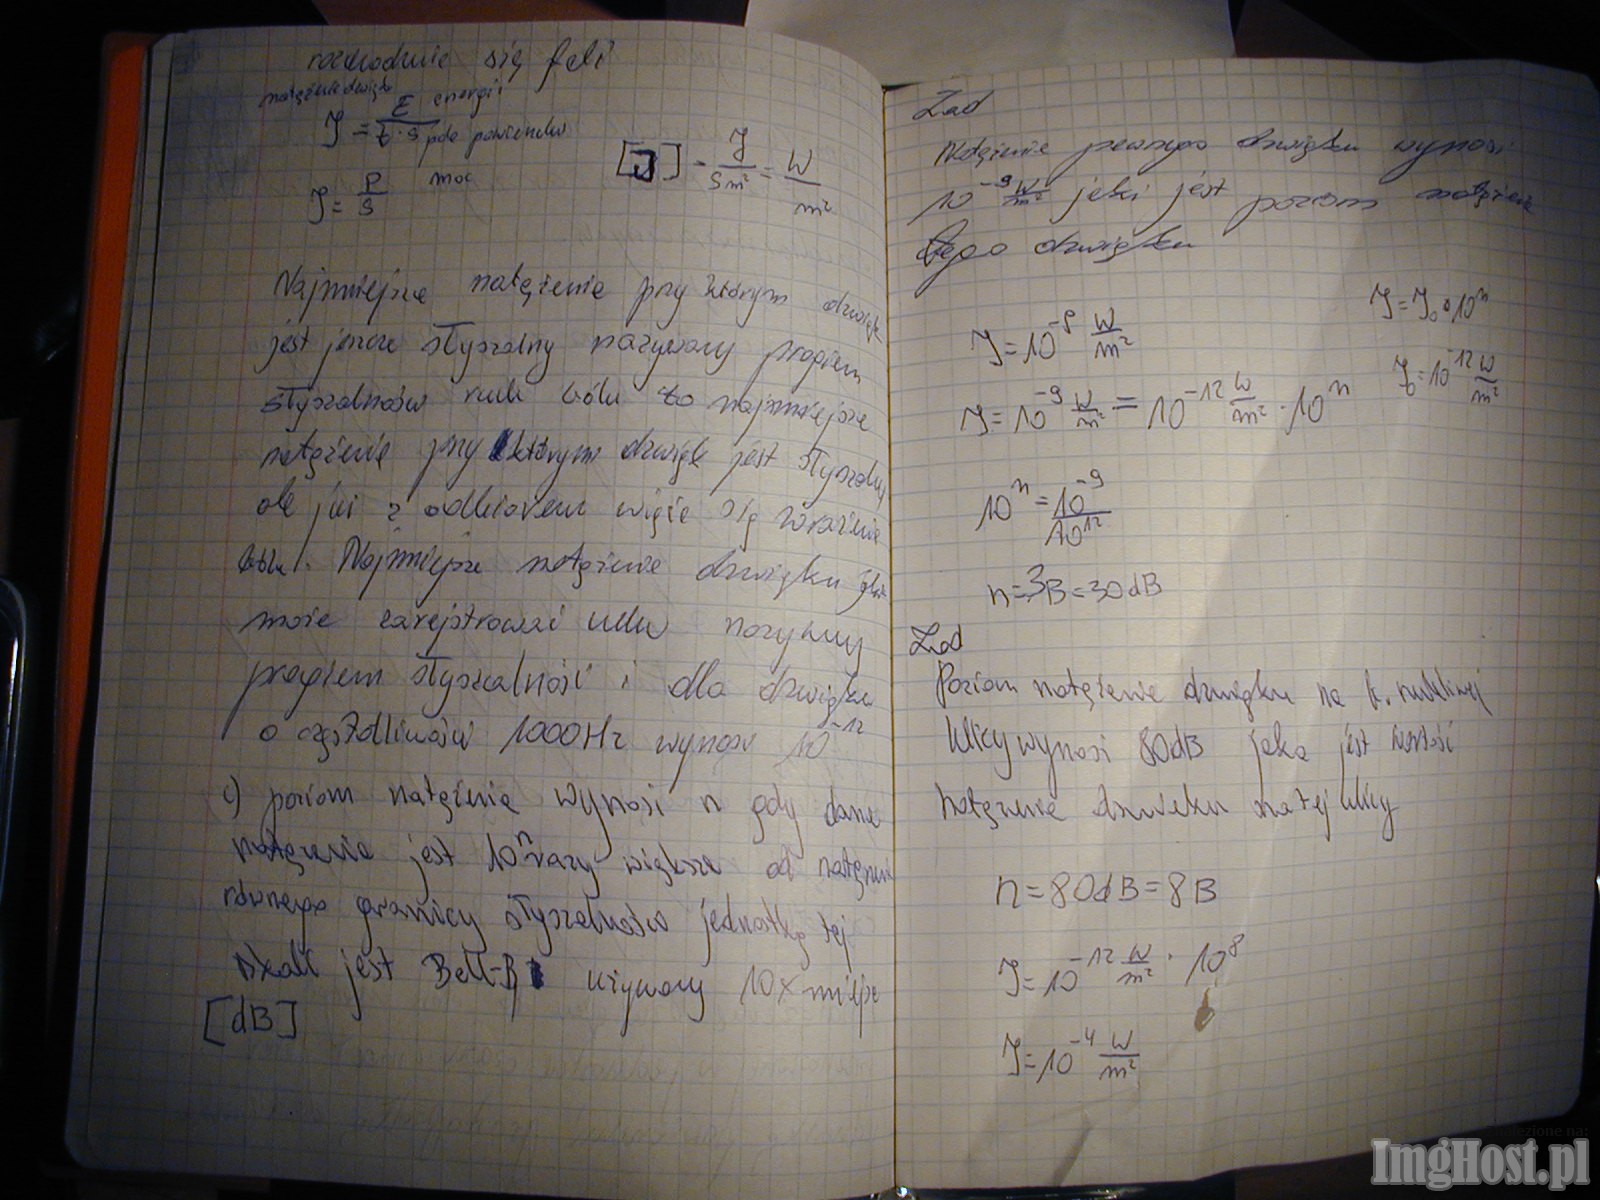 rozchodzenie się fali
natężenie dźwięku
J = E energii
t·s pole powierzchni
J = P moc
S
[J] = J = W
sm² m²
Najmniejsze natężenie przy którym dźwięk
jest jeszcze słyszalny nazywamy progiem
słyszalności bólu to najmniejsze
natężenie przy którym dźwięk jest słyszalny
ale już z odbiorem wiąże się wrażenie
bólu. Najmniejsze natężenie dźwięku
może zarejstrować ucho nazywamy
progiem słyszalności i dla dźwięku
o częstotliwości 1000Hz wynosi 10⁻¹²
c) poziom natężenia wynosi n gdy dane
natężenie jest 10ⁿ razy większe od natężenia
równego granicy słyszalności jednostką tej
skali jest Bell-B używamy 10x mniejsze
[dB]
Zad
Natężenie pewnego dźwięku wynosi
10⁻⁹ W/m² jaki jest poziom natężenia
tego dźwięku
J = J₀ · 10ⁿ
J = 10⁻⁹ W/m²
J₀ = 10⁻¹² W/m²
J = 10⁻⁹ W/m² = 10⁻¹² W/m² · 10ⁿ
10ⁿ = 10⁻⁹
10¹²
n = 3B = 30dB
Zad
Poziom natężenie dźwięku na ruchliwej
ulicy wynosi 80dB jaka jest wartość
natężenie dźwięku na tej ulicy
n = 80dB = 8B
J = 10⁻¹² W/m² · 10⁸
J = 10⁻⁴ W/m²
ImgHost.pl